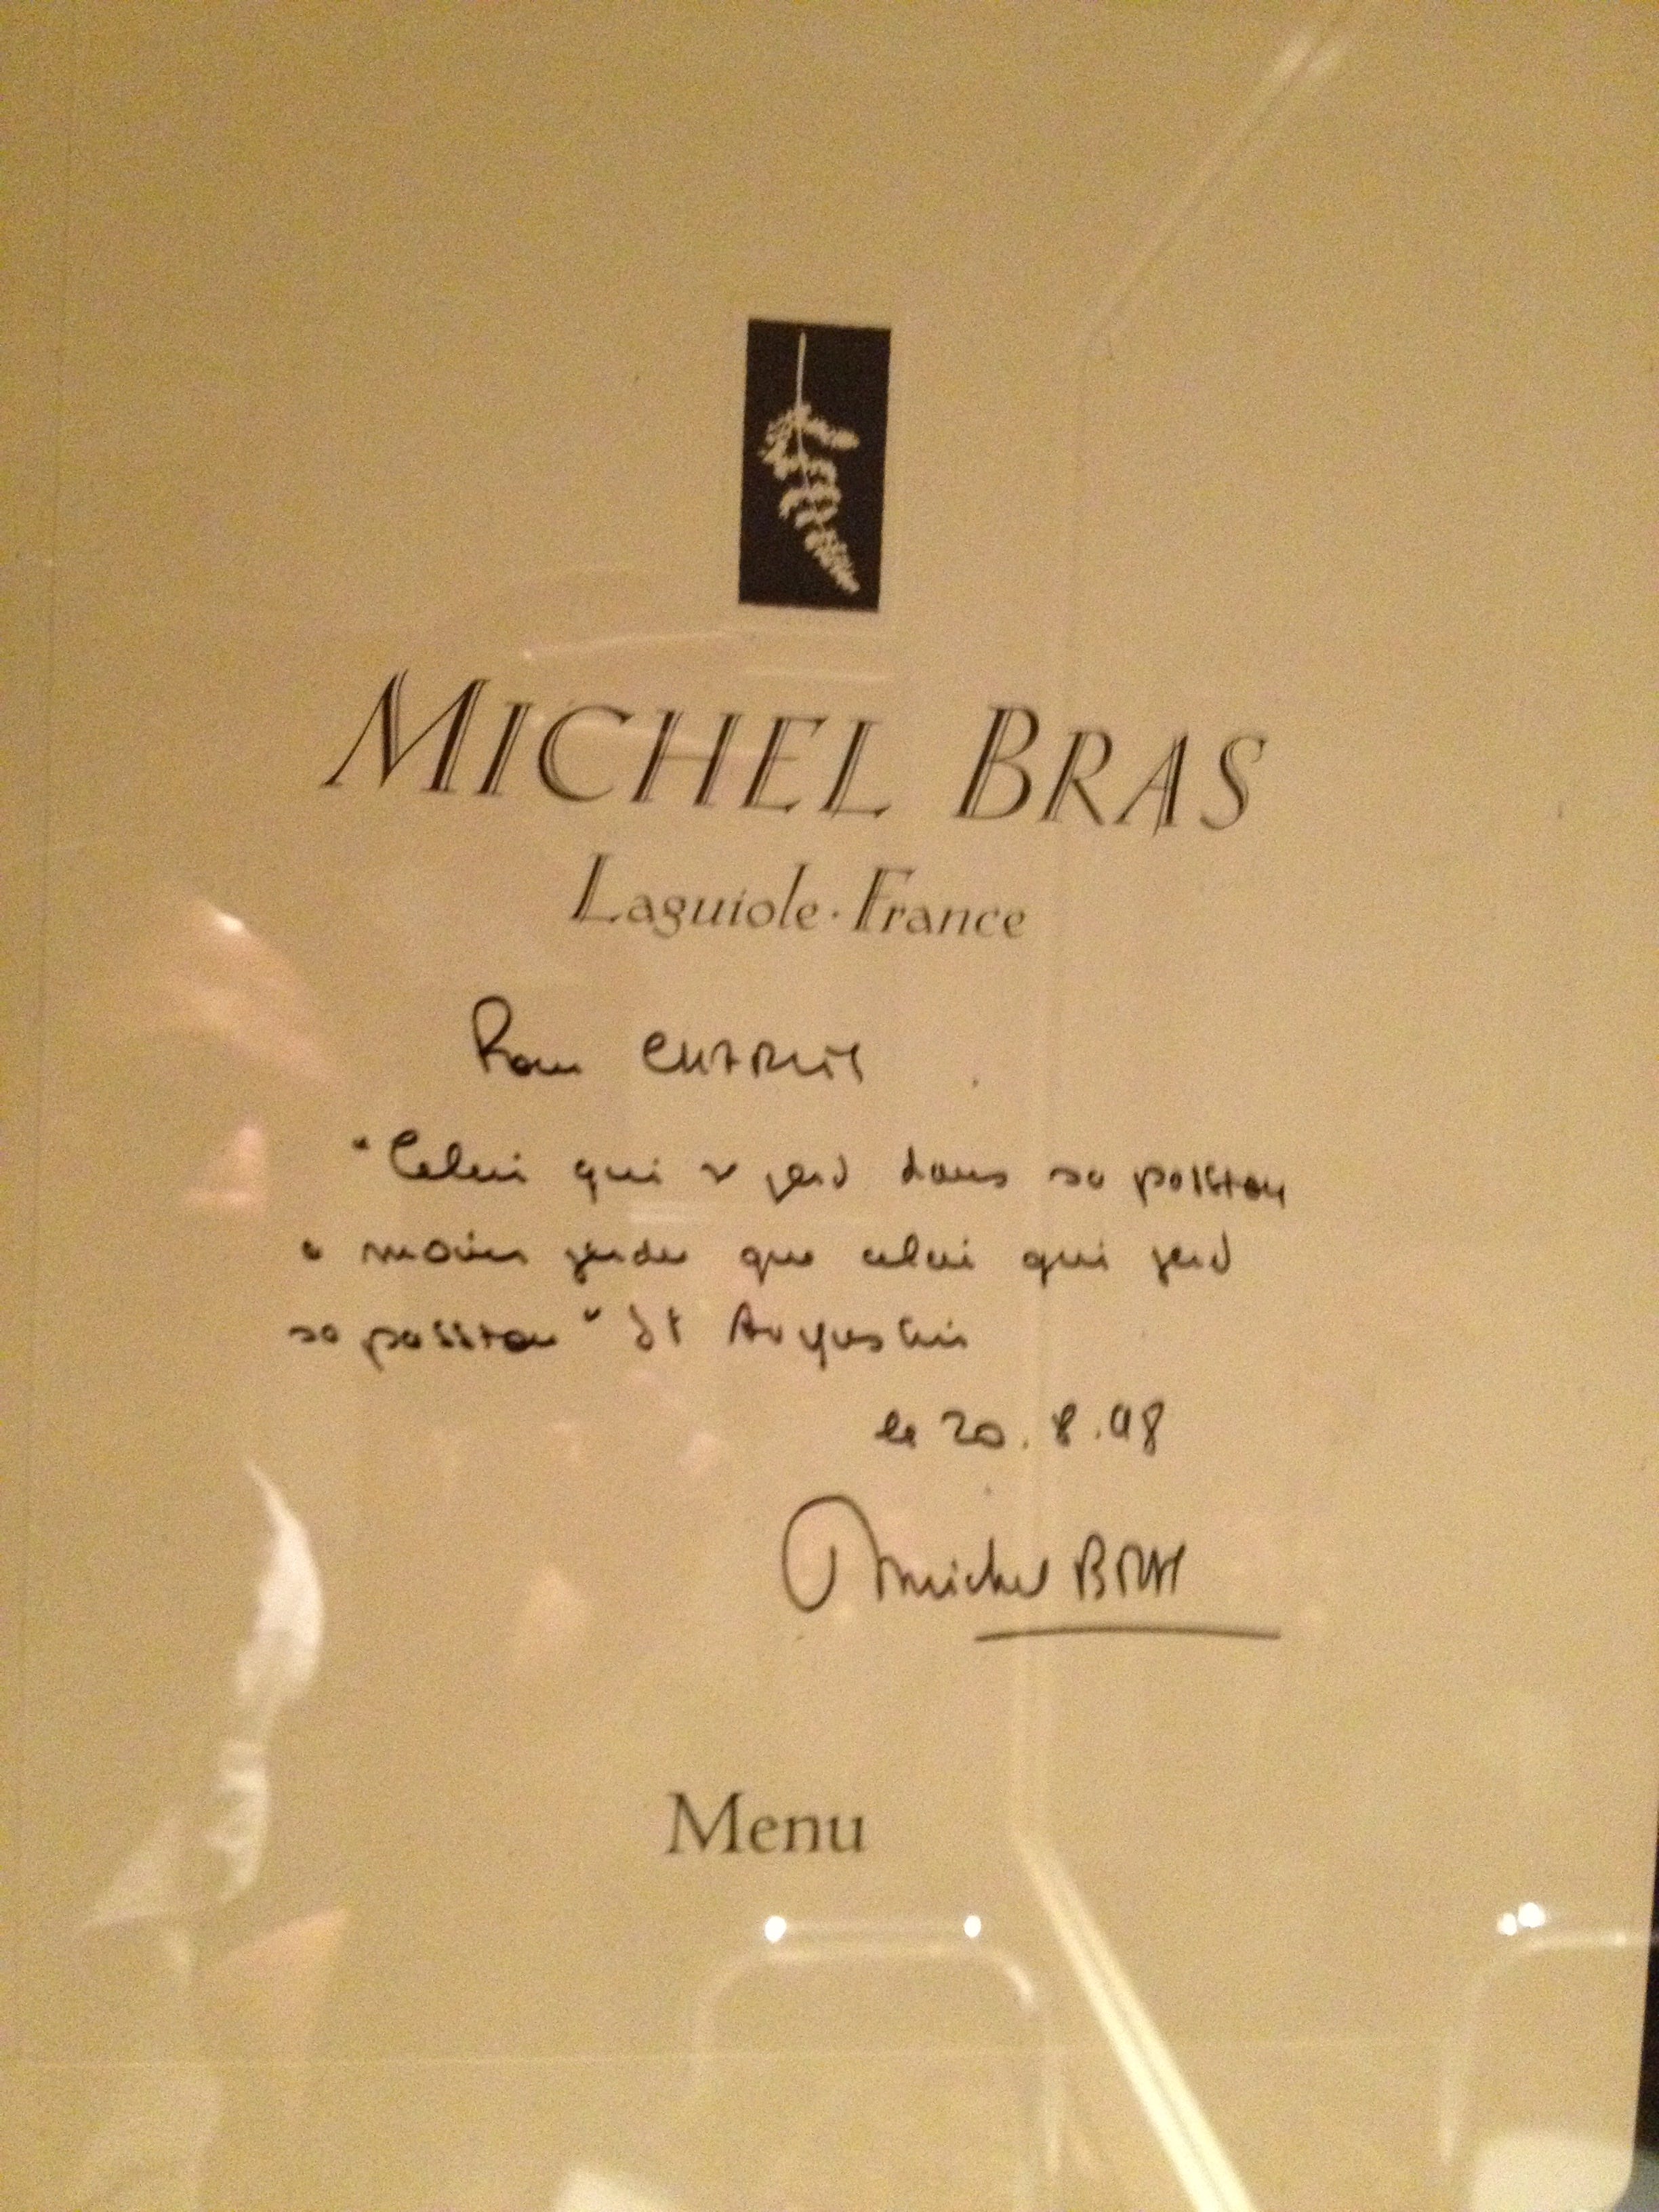 MICHEL BRAS
Laguiole · France
Pour CHARLIE
"Celui qui se perd dans sa passion
a moins perdu que celui qui perd
sa passion" St Augustin
le 20.8.98
Michel BRAS
Menu